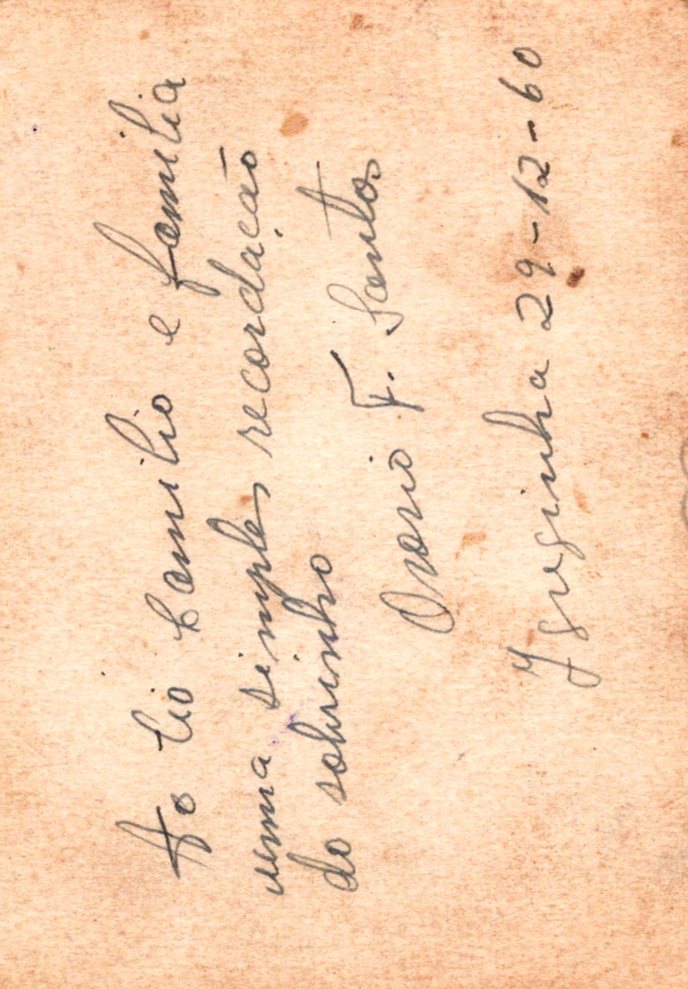 Ao tio Camilio e familia
uma simples recordação
do sobrinho
Osorio F. Santos
Igreginha 29-12-60